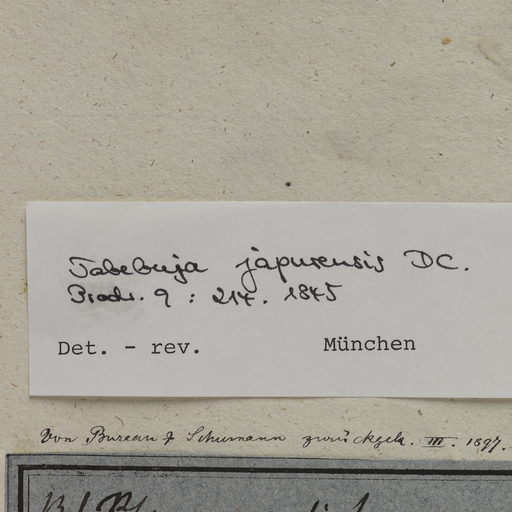 Tabebuja japurensis DC.
Prodr. 9 : 214. 1845
Det. - rev. München
Von Bureau & Schumann zurückgek. III. 1897.